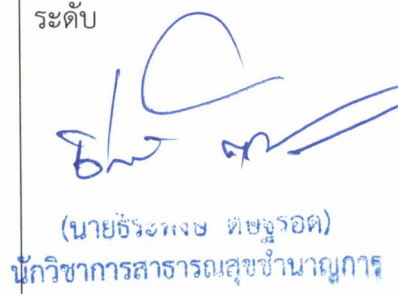 ระดับ
(นายธีระพงษ์
นักวิชาการสาธารณสุขชำนาญการ